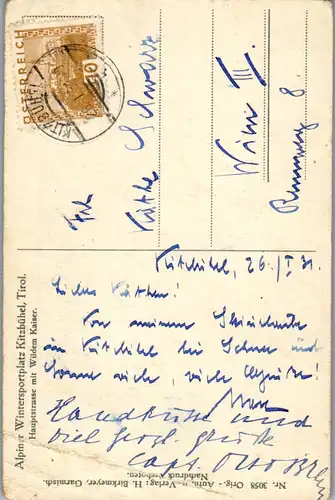 ÖSTERREICH
10
KITZBÜHEL
Käthe Schwarz
Wien III.
Rennweg 8.
Kitzbühel, 26./I 31.
Liebes Käthchen!
Von meinem Skiurlaube
in Kitzbühel bei Schnee und
Sonne viele, viele Grüße!
Handküsse und
viel herzl. Grüße
Capt. Otto
Alpiner Wintersportplatz Kitzbühel, Tirol.
Hauptstrasse mit Wildem Kaiser.
Nr. 3058 Orig.-Aufn. u. Verlag: H. Birkmeyer, Garmisch.
Nachdruck verboten.